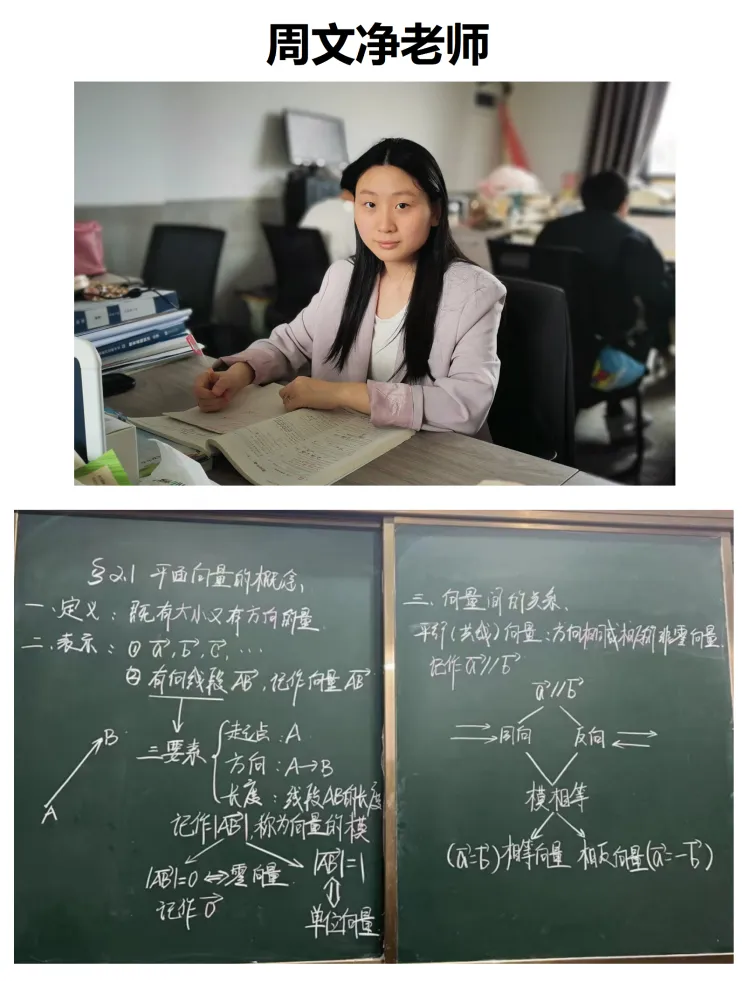 周文净老师
§2.1 平面向量的概念
一、定义：既有大小又有方向的量
二、表示：① a⃗, b⃗, c⃗, ⋯
② 有向线段 AB⃗, 记作向量 AB⃗
B
A
三要素
起点：A
方向：A→B
长度：线段AB的长度
记作|AB⃗|, 称为向量的模
|AB⃗|=0 ⇔ 零向量
记作 0⃗
|AB⃗|=1
⇕
单位向量
三、向量间的关系
平行(共线)向量：方向相同或相反的非零向量
记作 a⃗∥b⃗
a⃗∥b⃗
同向 反向
模相等
(a⃗=b⃗) 相等向量 相反向量(a⃗=-b⃗)